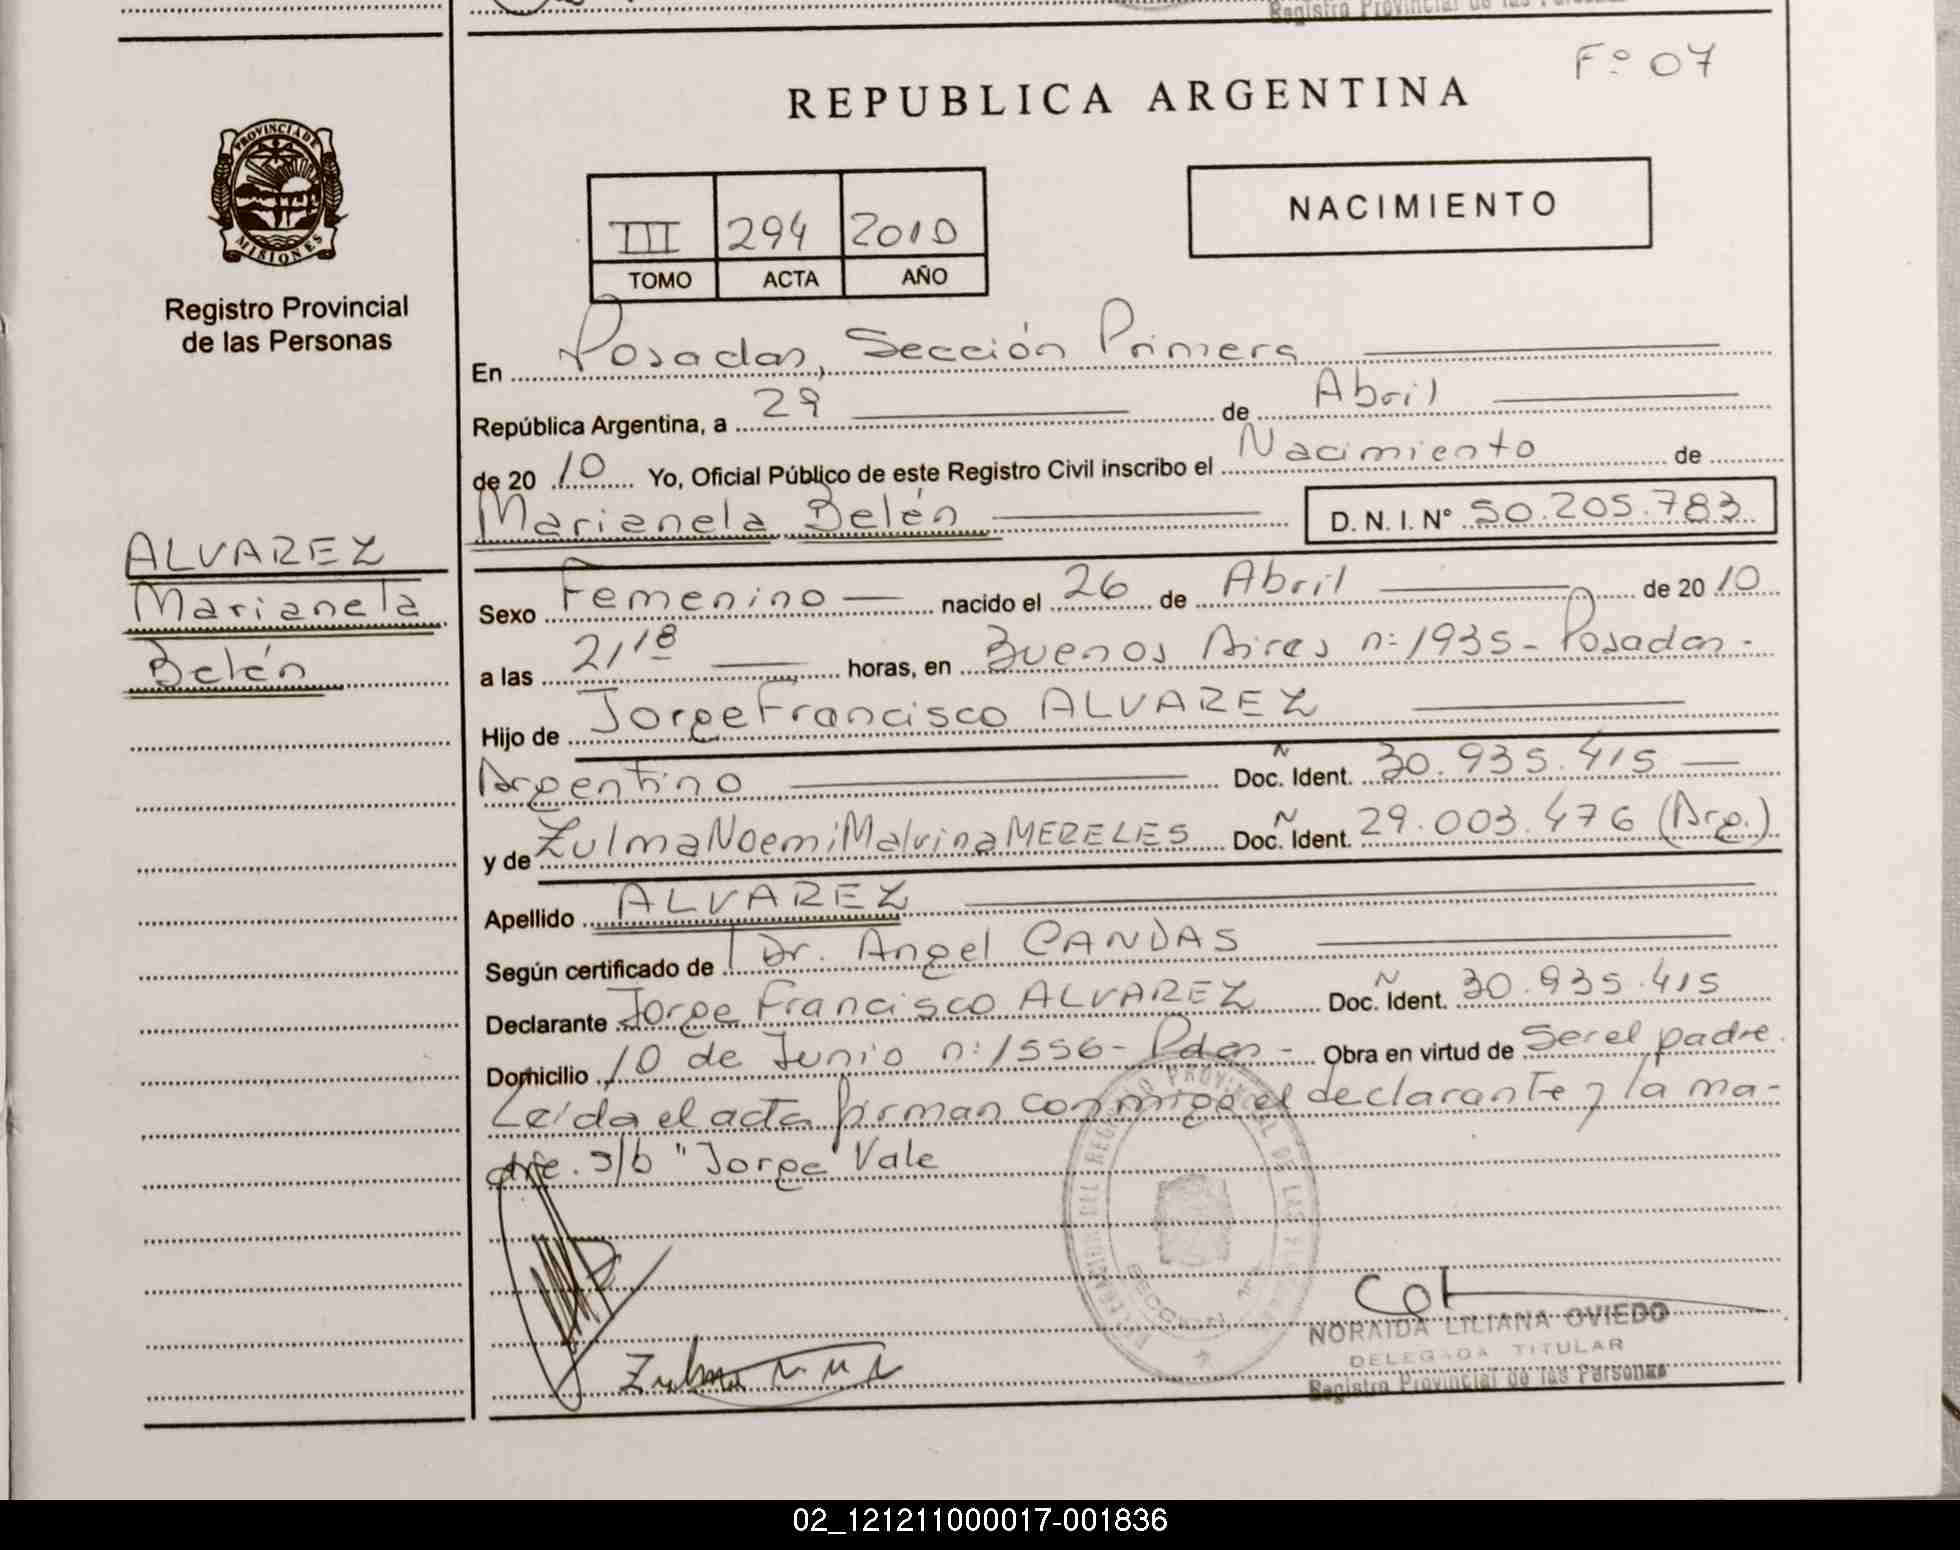 Registro Provincial de las Personas
Fº 07
REPUBLICA ARGENTINA
PROVINCIA DE
MISIONES
Registro Provincial
de las Personas
III 294 2010
TOMO ACTA AÑO
NACIMIENTO
En Posadas, Sección Primera
República Argentina, a 29 de Abril
de 20 10 Yo, Oficial Público de este Registro Civil inscribo el Nacimiento de
Marianela Belén D. N. I. Nº 50.205.783
ALVAREZ
Marianela
Belén
Sexo Femenino nacido el 26 de Abril de 20 10
a las 21/18 horas, en Buenos Aires nº 1935 - Posadas -
Hijo de Jorge Francisco ALVAREZ
Argentino Doc. Ident. 30.935.415
y de Zulma Noemi Malvina MERELES Doc. Ident. 29.003.476 (Arg.)
Apellido ALVAREZ
Según certificado de Dr. Angel CANDAS
Declarante Jorge Francisco ALVAREZ Doc. Ident. 30.935.415
Domicilio 10 de Junio nº 1556 - Pdas - Obra en virtud de Ser el padre.
Leída el acta firman conmigo el declarante y la ma-
dre. s/b "Jorge" Vale
REGISTRO PROVINCIAL DE LAS
SECCION 1ra
Zulma
NORAIDA LILIANA OVIEDO
DELEGADA TITULAR
Registro Provincial de las Personas
02_121211000017-001836